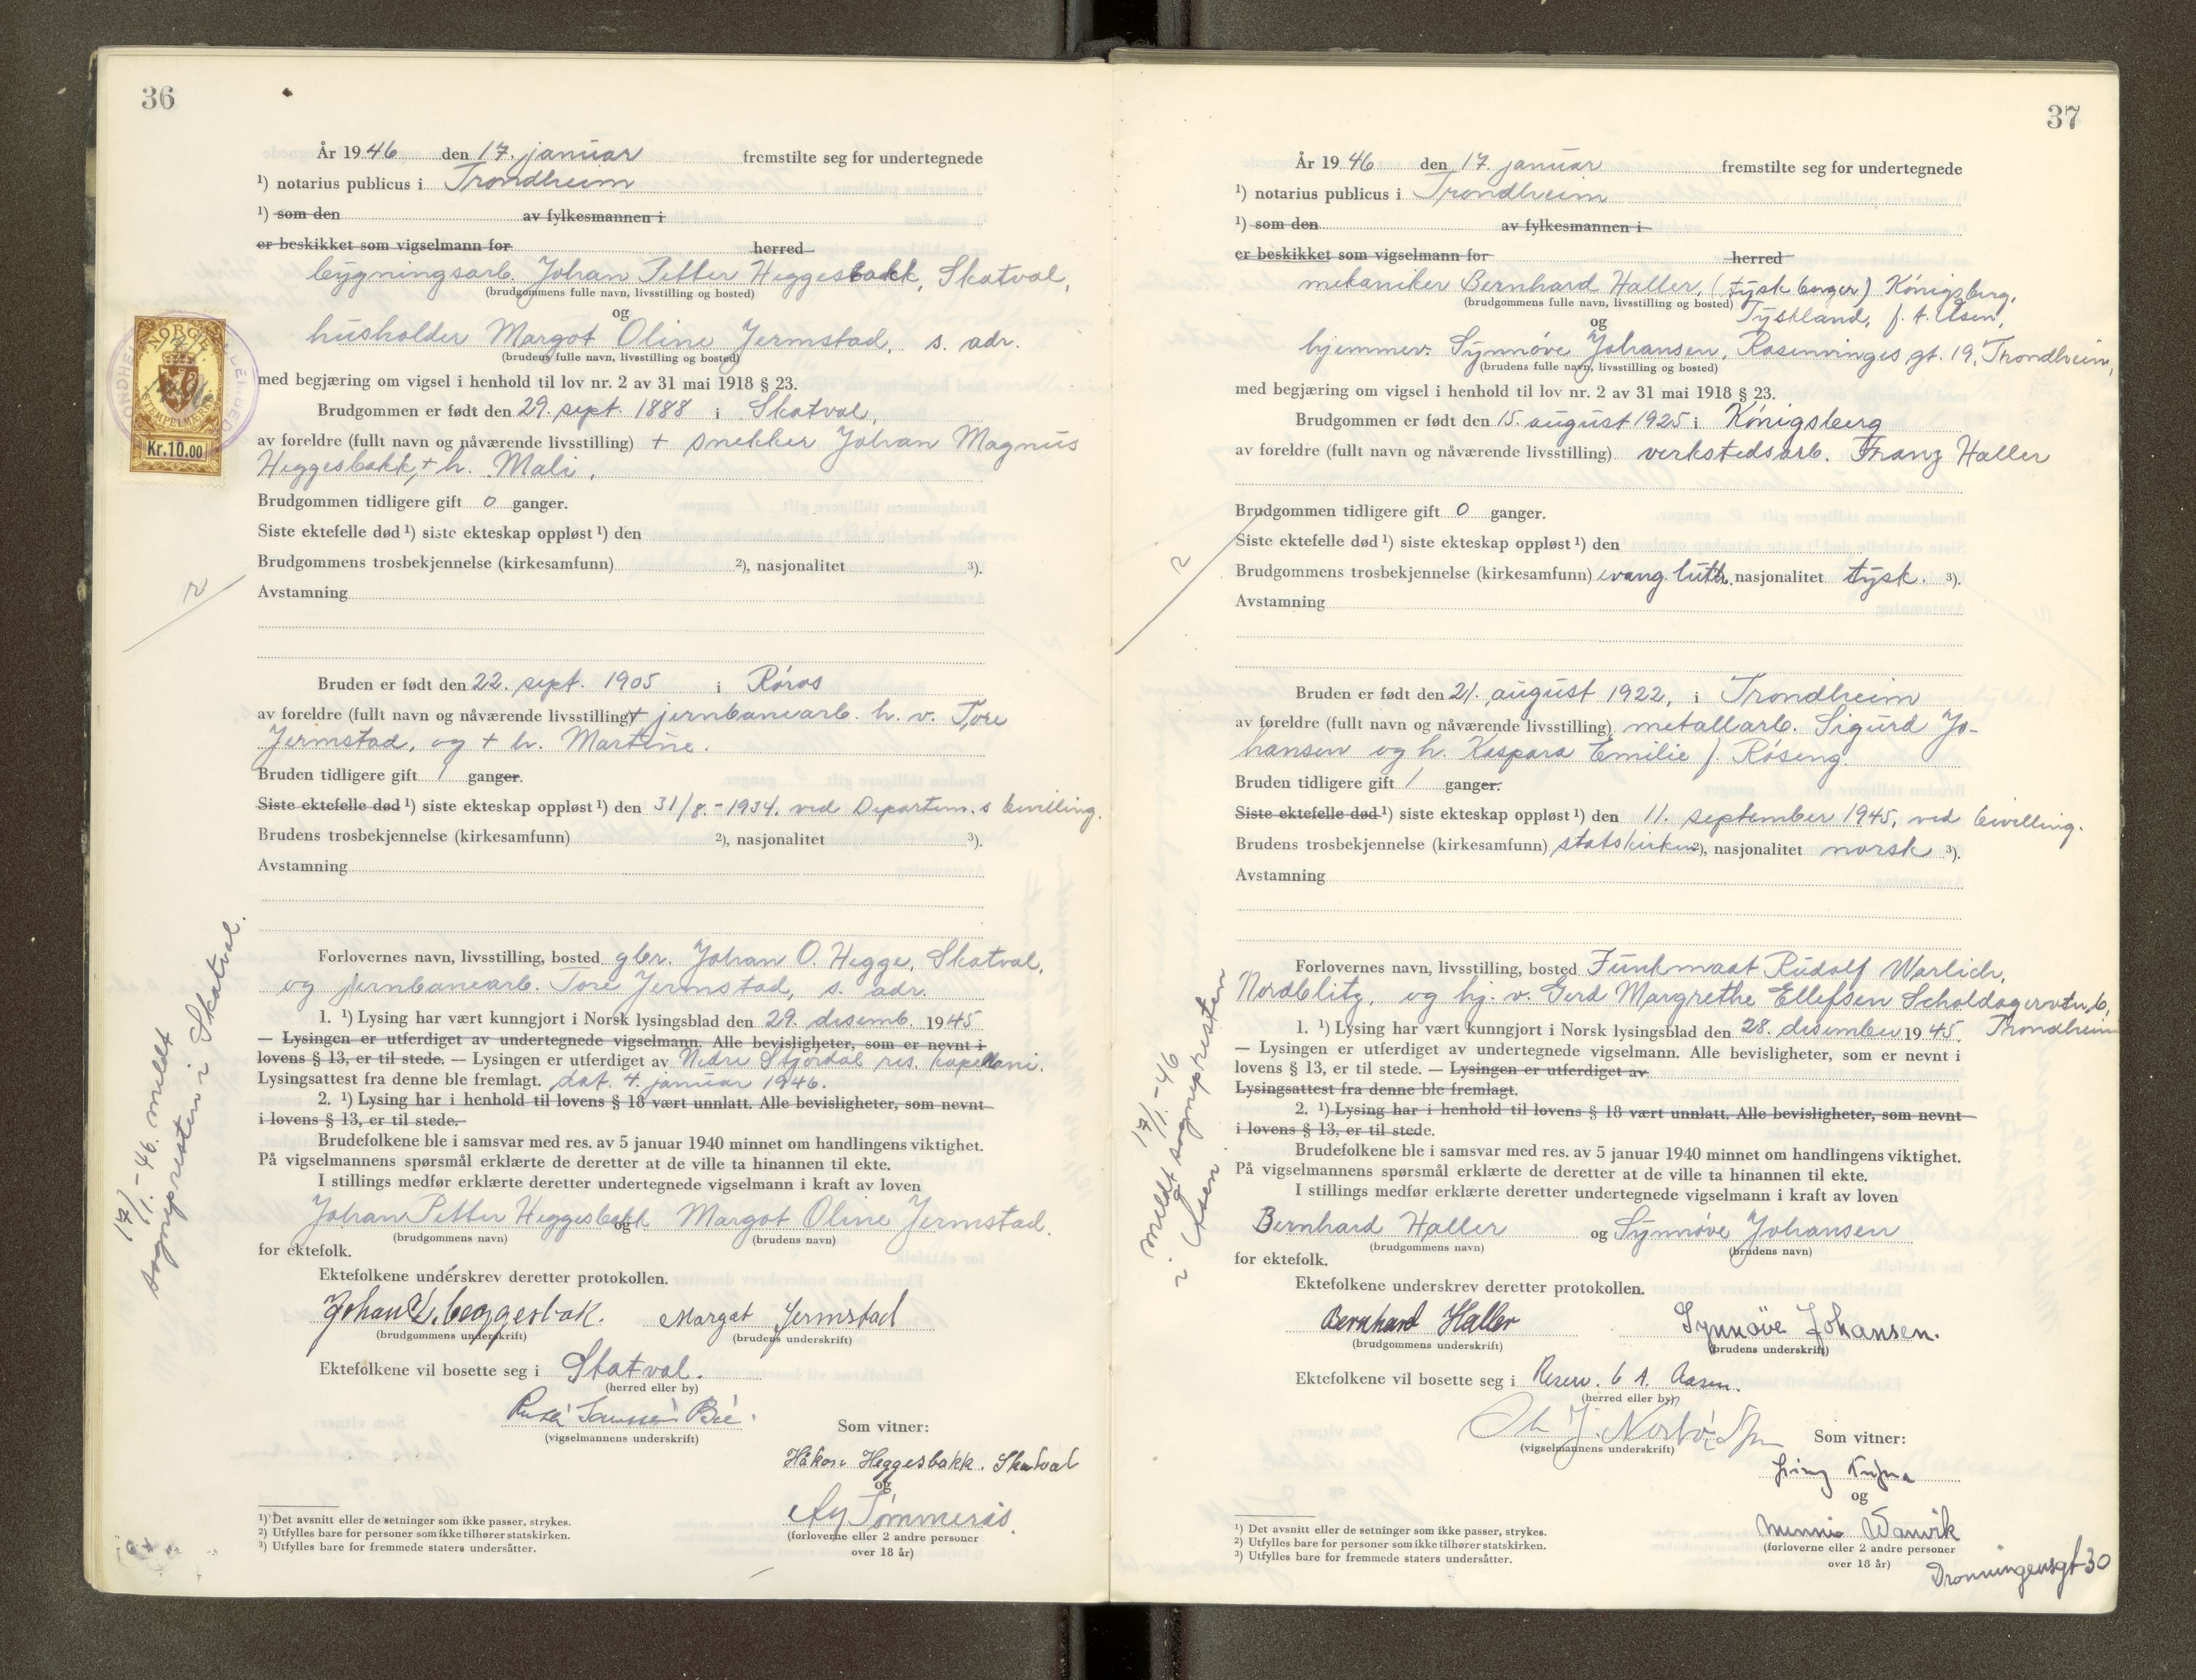 36
År 1946 den 17. januar fremstilte seg for undertegnede
¹) notarius publicus i Trondheim
¹) som den av fylkesmannen i
er beskikket som vigselmann for herred
bygningsarb. Johan Petter Heggesbakk, Skatval,
(brudgommens fulle navn, livsstilling og bosted)
og
husholder Margot Oline Jermstad, s. adr.
(brudens fulle navn, livsstilling og bosted)
NORGE
STEMPELMERKE
Kr.10.00
med begjæring om vigsel i henhold til lov nr. 2 av 31 mai 1918 § 23.
Brudgommen er født den 29. sept. 1888 i Skatval,
av foreldre (fullt navn og nåværende livsstilling) + snekker Johan Magnus
Heggesbakk, + h. Mali,
Brudgommen tidligere gift 0 ganger.
Siste ektefelle død ¹) siste ekteskap oppløst ¹) den
Brudgommens trosbekjennelse (kirkesamfunn) ²), nasjonalitet ³).
Avstamning
Bruden er født den 22. sept. 1905 i Røros
av foreldre (fullt navn og nåværende livsstilling) + jernbanearb. h. v. Tore
Jermstad, og + h. Martine.
Bruden tidligere gift 1 ganger.
Siste ektefelle død ¹) siste ekteskap oppløst ¹) den 31/8.-1934. ved Departem.s bevilling.
Brudens trosbekjennelse (kirkesamfunn) ²), nasjonalitet ³).
Avstamning
Forlovernes navn, livsstilling, bosted gbr. Johan O. Hegge, Skatval,
og jernbanearb. Tore Jermstad, s. adr.
1. ¹) Lysing har vært kunngjort i Norsk lysingsblad den 29. desemb. 1945
— Lysingen er utferdiget av undertegnede vigselmann. Alle bevisligheter, som er nevnt i
lovens § 13, er til stede. — Lysingen er utferdiget av Nedre Stjørdal res. kapellani.
Lysingsattest fra denne ble fremlagt. dat. 4. januar 1946.
2. ¹) Lysing har i henhold til lovens § 18 vært unnlatt. Alle bevisligheter, som nevnt
i lovens § 13, er til stede.
Brudefolkene ble i samsvar med res. av 5 januar 1940 minnet om handlingens viktighet.
På vigselmannens spørsmål erklærte de deretter at de ville ta hinannen til ekte.
I stillings medfør erklærte deretter undertegnede vigselmann i kraft av loven
Johan Petter Heggesbakk og Margot Oline Jermstad.
(brudgommens navn) (brudens navn)
for ektefolk.
Ektefolkene underskrev deretter protokollen.
Margot Jermstad
(brudgommens underskrift) (brudens underskrift)
Ektefolkene vil bosette seg i Skatval.
(herred eller by)
(vigselmannens underskrift)
Som vitner:
Håkon Heggesbakk. Skatval
og
Tømmerås.
(forloverne eller 2 andre personer
over 18 år)
¹) Det avsnitt eller de setninger som ikke passer, strykes.
²) Utfylles bare for personer som ikke tilhører statskirken.
³) Utfylles bare for fremmede staters undersåtter.
17/1.-46. meldt
sognepresten i Skatval.
37
År 1946 den 17. januar fremstilte seg for undertegnede
¹) notarius publicus i Trondheim
¹) som den av fylkesmannen i
er beskikket som vigselmann for herred
mekaniker Bernhard Haller, (tysk borger) Königsberg,
(brudgommens fulle navn, livsstilling og bosted) Tyskland, f. t. Åsen,
og
hjemmev. Synnøve Johansen, Rosenvinges gt. 19, Trondheim,
(brudens fulle navn, livsstilling og bosted)
med begjæring om vigsel i henhold til lov nr. 2 av 31 mai 1918 § 23.
Brudgommen er født den 15. august 1925 i Königsberg
av foreldre (fullt navn og nåværende livsstilling) verkstedsarb. Franz Haller
Brudgommen tidligere gift 0 ganger.
Siste ektefelle død ¹) siste ekteskap oppløst ¹) den
Brudgommens trosbekjennelse (kirkesamfunn) evang. luth. nasjonalitet tysk. ³).
Avstamning
Bruden er født den 21. august 1922, i Trondheim
av foreldre (fullt navn og nåværende livsstilling) metallarb. Sigurd Jo-
hansen og h. Kaspara Emilie f. Røseng.
Bruden tidligere gift 1 ganger.
Siste ektefelle død ¹) siste ekteskap oppløst ¹) den 11. september 1945, ved bevilling.
Brudens trosbekjennelse (kirkesamfunn) statskirken ²), nasjonalitet norsk ³).
Avstamning
Forlovernes navn, livsstilling, bosted Funkmaat Rudolf Warlich,
Nordblitz, og hj. v. Gerd Margrethe Ellefsen Scholdagervn. 6,
1. ¹) Lysing har vært kunngjort i Norsk lysingsblad den 28. desember 1945. Trondheim
— Lysingen er utferdiget av undertegnede vigselmann. Alle bevisligheter, som er nevnt i
lovens § 13, er til stede. — Lysingen er utferdiget av
Lysingsattest fra denne ble fremlagt.
2. ¹) Lysing har i henhold til lovens § 18 vært unnlatt. Alle bevisligheter, som nevnt
i lovens § 13, er til stede.
Brudefolkene ble i samsvar med res. av 5 januar 1940 minnet om handlingens viktighet.
På vigselmannens spørsmål erklærte de deretter at de ville ta hinannen til ekte.
I stillings medfør erklærte deretter undertegnede vigselmann i kraft av loven
Bernhard Haller og Synnøve Johansen
(brudgommens navn) (brudens navn)
for ektefolk.
Ektefolkene underskrev deretter protokollen.
Bernhard Haller Synnöve Johansen.
(brudgommens underskrift) (brudens underskrift)
Ektefolkene vil bosette seg i Reserv. 6 A. Aasen.
(herred eller by)
(vigselmannens underskrift)
Som vitner:
og
Wanvik
(forloverne eller 2 andre personer
over 18 år)
Dronningensgt 30
¹) Det avsnitt eller de setninger som ikke passer, strykes.
²) Utfylles bare for personer som ikke tilhører statskirken.
³) Utfylles bare for fremmede staters undersåtter.
17/1.-46
meldt sognepresten
i Åsen.